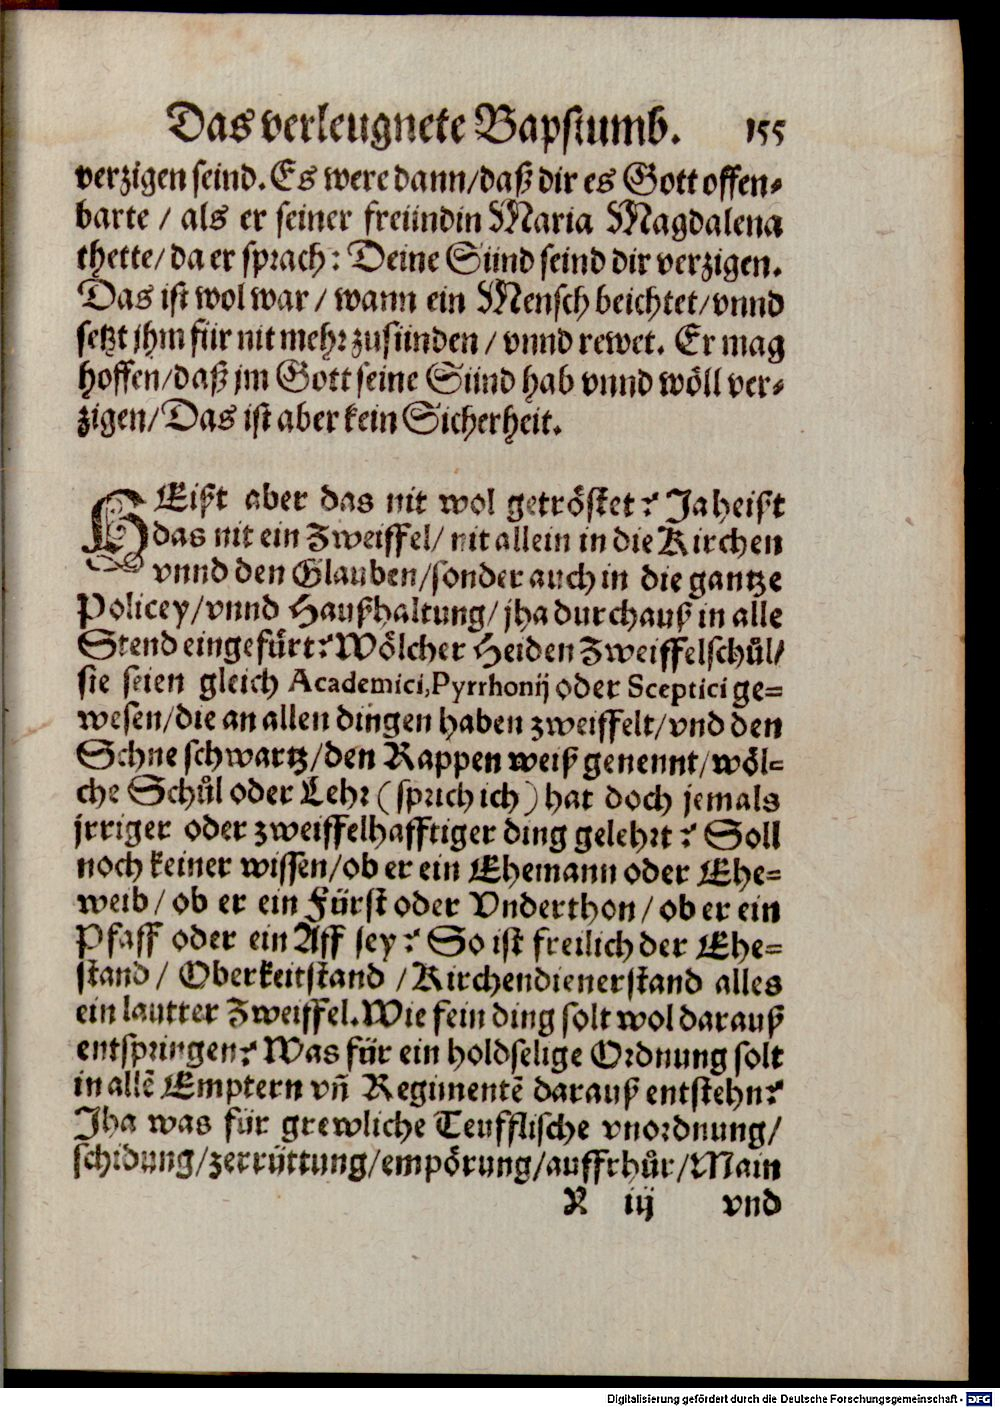 Das verleugnete Bapstumb. 155
verzigen seind. Es were dann/daß dir es Gott offen-
barte / als er seiner freündin Maria Magdalena
thette/ da er sprach: Deine Sünd seind dir verzigen.
Das ist wol war / wann ein Mensch beichtet/vnnd
setzt jhm für nit mehr zusünden / vnnd rewet. Er mag
hoffen/daß jm Gott seine Sünd hab vnnd wöll ver-
zigen/ Das ist aber kein Sicherheit.
HEißt aber das nit wol getröstet? Ja heißt
das nit ein Zweiffel/ nit allein in die Kirchen
vnnd den Glauben/sonder auch in die gantze
Policey/vnnd Haußhaltung/ jha durchauß in alle
Stend eingefürt? Wölcher Heiden Zweiffelschůl/
sie seien gleich Academici, Pyrrhonij oder Sceptici ge=
wesen/die an allen dingen haben zweiffelt/vnd den
Schne schwartz/den Rappen weiß genennt/wöl=
che Schůl oder Lehr (sprich ich) hat doch jemals
jrriger oder zweiffelhafftiger ding gelehrt? Soll
noch keiner wissen/ob er ein Ehemann oder Ehe=
weib/ ob er ein Fürst oder Vnderthon/ ob er ein
Pfaff oder ein Aff sey? So ist freilich der Ehe=
stand/ Oberkeitstand /Kirchendienerstand alles
ein lautter Zweiffel. Wie fein ding solt wol darauß
entspringen? Was für ein holdselige Ordnung solt
in allē Emptern vn̄ Regimentē darauß entstehn?
Jha was für grewliche Teufflische vnordnung/
schidung/zerrüttung/empörung/auffrhůr/Main
R iij vnd
Digitalisierung gefördert durch die Deutsche Forschungsgemeinschaft - DFG